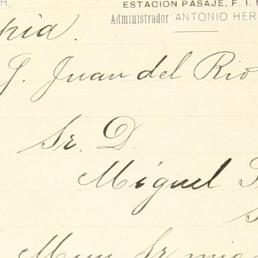 ESTACION PASAJE, F. I.
Administrador ANTONIO HER
pia.
J. Juan del Rio
Sr. D.
Miguel
Muy Sr. mio